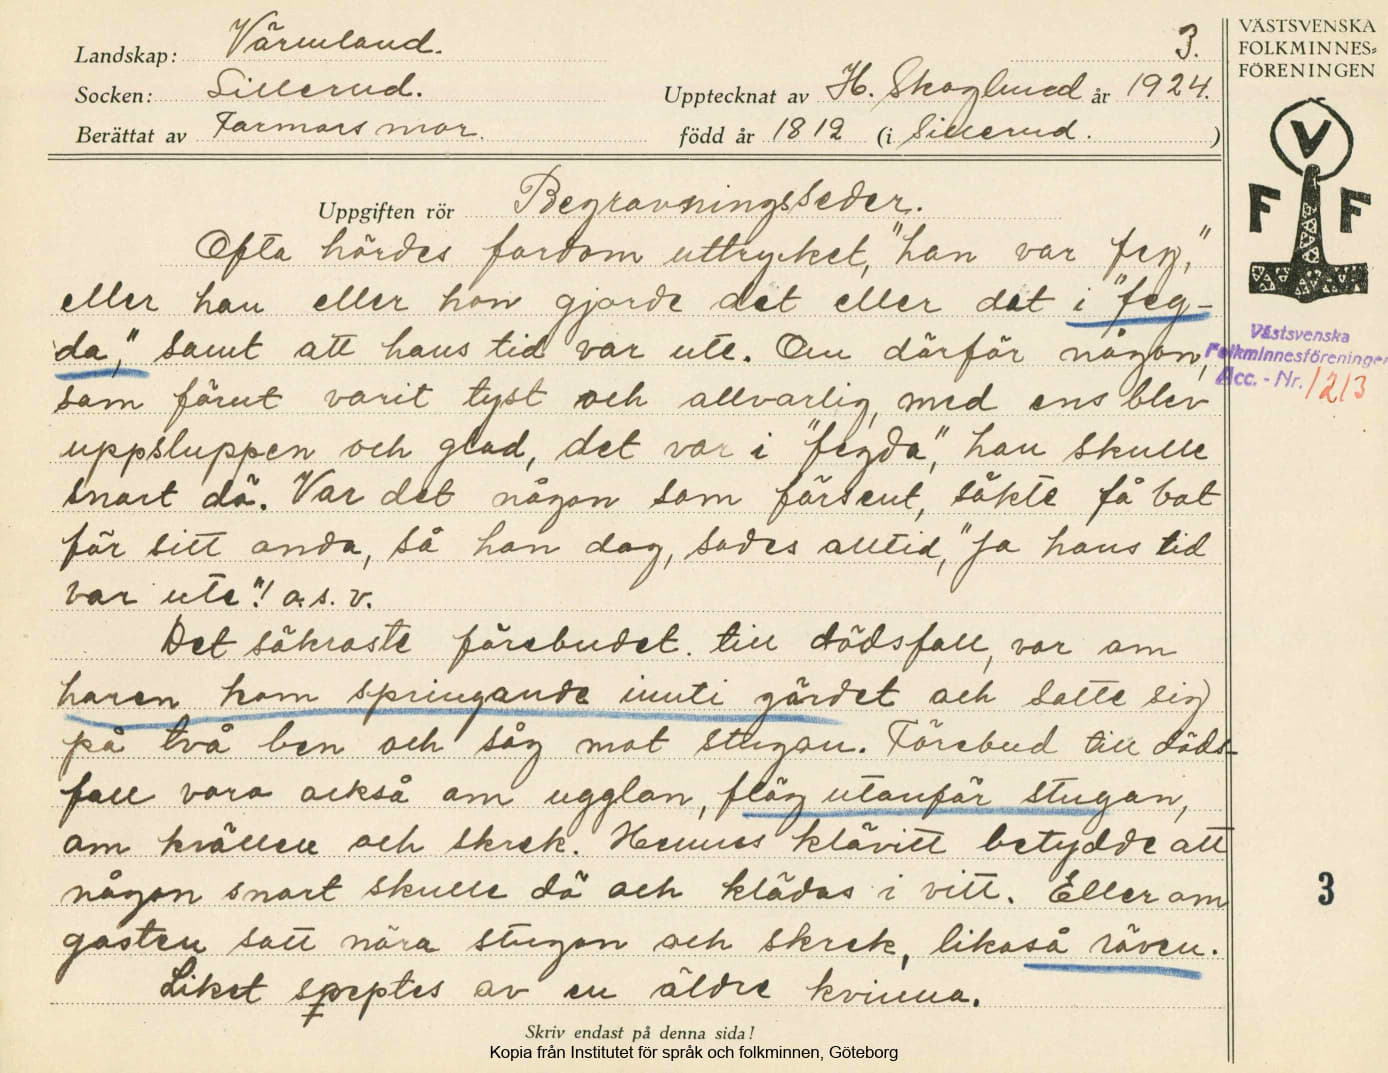 Landskap: Värmland.
3.
Socken: Sillerud.
Upptecknat av H. Skoglund år 1924.
Berättat av Farmors mor.
född år 1812 (i Sillerud.)
VÄSTSVENSKA
FOLKMINNES=
FÖRENINGEN
V
F F
Uppgiften rör Begravningsseder.
Ofta hördes fordom uttrycket, "han var feg,"
eller han eller hon gjorde det eller det i "feg-
da," samt att hans tid var ute. Om därför någon,
som förut varit tyst och allvarlig, med ens blev
uppsluppen och glad, det var i "fegda", han skulle
snart dö. Var det någon som försent, sökte få bot
för sitt onda, så han dog, sades alltid, "Ja hans tid
var ute"! o.s.v.
Det säkraste förebudet till dödsfall, var om
haren kom springande inuti gärdet och satte sig
på två ben och såg mot stugan. Förebud till döds-
fall vara också om ugglan, flög utanför stugan,
om kvällen och skrek. Hennes klävitt betydde att
någon snart skulle dö och klädas i vitt. Eller om
gasten satt nära stugan och skrek, likaså räven.
Liket speptes av en äldre kvinna.
Västsvenska
Folkminnesföreningen
Acc. - Nr. 1213
3
Skriv endast på denna sida!
Kopia från Institutet för språk och folkminnen, Göteborg